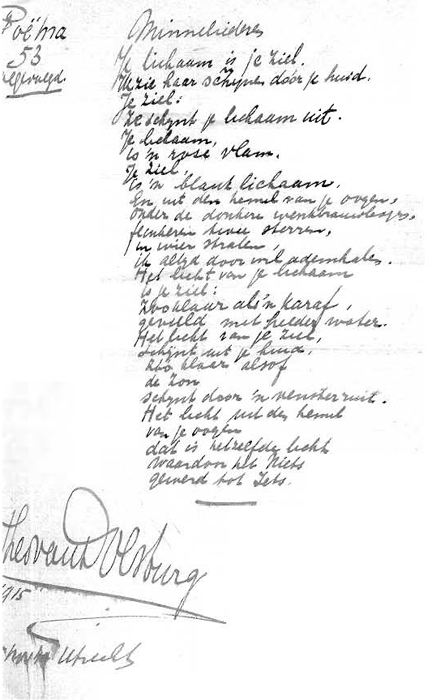 Poëma
53
Minneliederes
Je lichaam is je ziel.
Ik zie haar schijnen dóór je huid.
Je ziel:
Ze schijnt je lichaam uit.
Je lichaam,
is 'n rose vlam.
Je ziel,
is 'n blank lichaam.
En uit den hemel van je oogen,
onder de donkere wenkbrauwboogs,
flonkeren twee sterren,
in wier stralen,
ik altijd door wil ademhalen.
Het licht van je lichaam
is je ziel:
Zóó klaar als 'n karaf,
gevuld met helder water.
Het licht van je ziel,
schijnt uit je huid,
zóó klaar alsof
de zon
schijnt door 'n vensterruit.
Het licht uit den hemel
van je oogen
dat is hetzelfde licht
waardoor het Niets
gewerd tot Iets.
Theo van Doesburg
1915
Utrecht